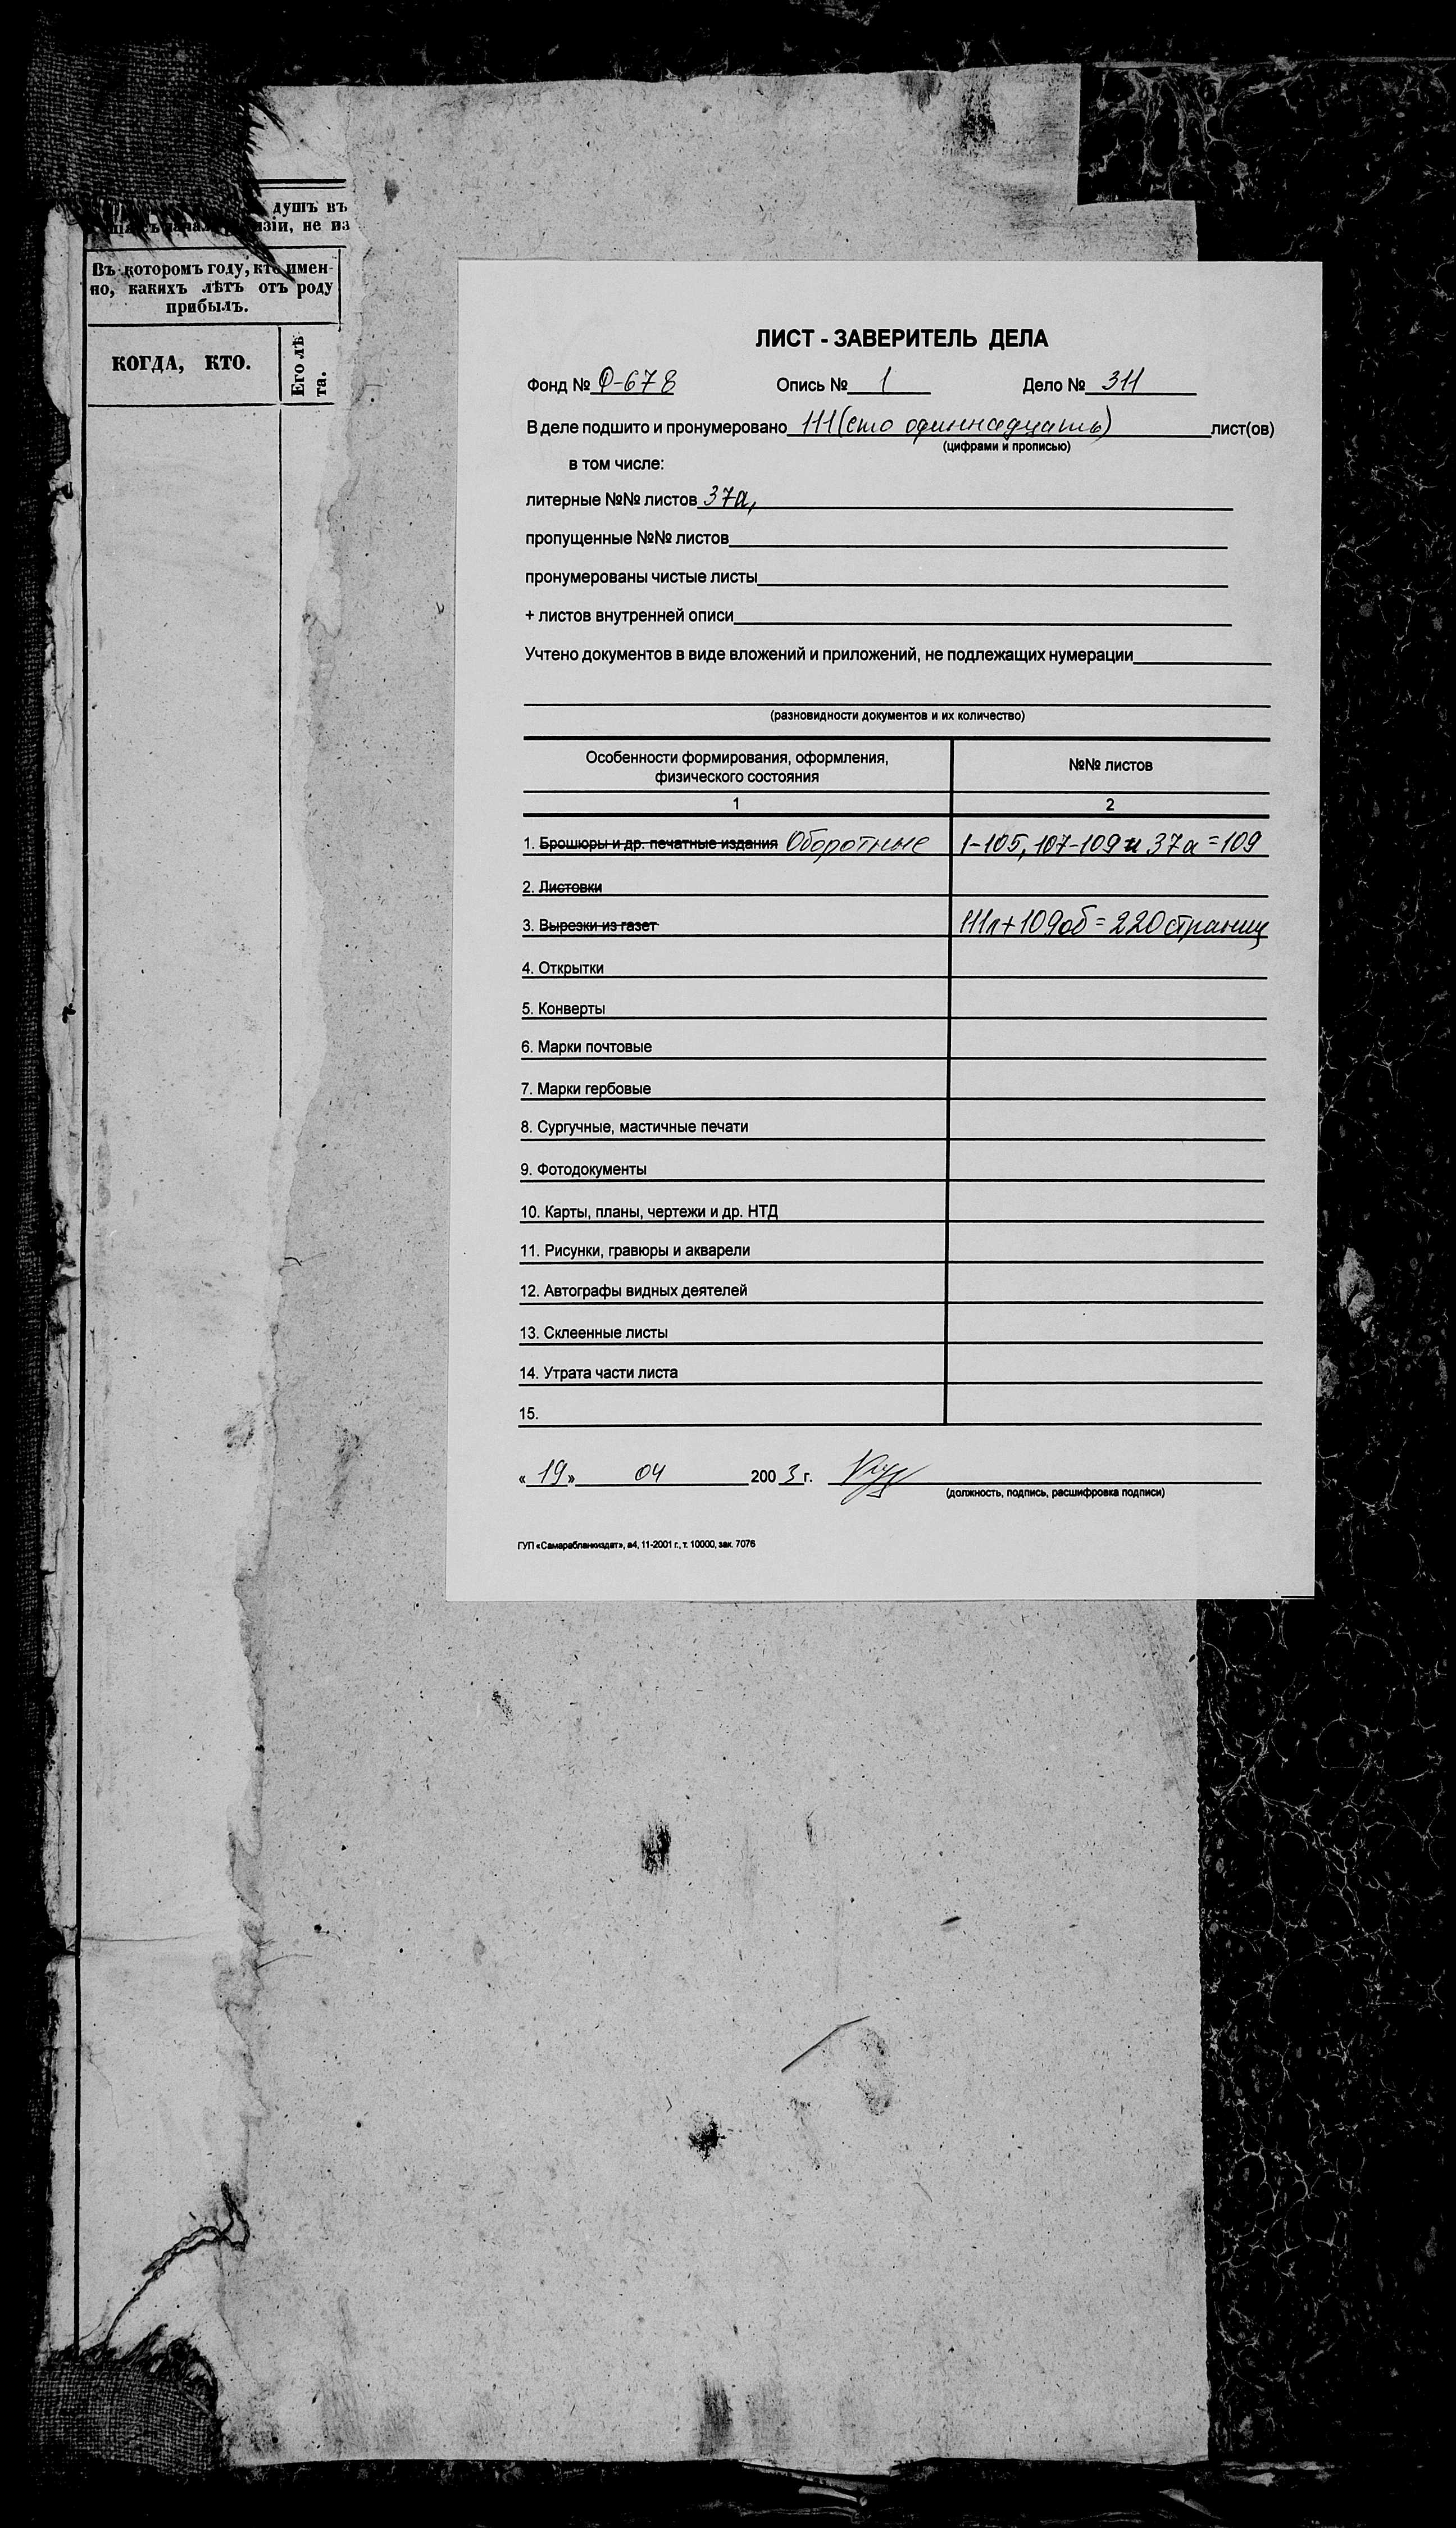 душъ въ
изіи, не из
Въ котором​ъ году, кто имен-
но, какихъ лѣтъ отъ роду
прибылъ.
КОГДА, КТО.
Его лѣ
та.
ЛИСТ - ЗАВЕРИТЕЛЬ ДЕЛА
Фонд № Ф-678 Опись № 1 Дело № 311
В деле подшито и пронумеровано 111 (сто одиннадцать) лист(ов)
(цифрами и прописью)
в том числе:
литерные №№ листов 37а,
пропущенные №№ листов
пронумерованы чистые листы
+ листов внутренней описи
Учтено документов в виде вложений и приложений, не подлежащих нумерации
(разновидности документов и их количество)
Особенности формирования, оформления,
физического состояния
№№ листов
1 2
1. Брошюры и др. печатные издания Оборотные 1-105, 107-109 и 37а = 109
2. Листовки
3. Вырезки из газет 111л + 109об = 220 страниц
4. Открытки
5. Конверты
6. Марки почтовые
7. Марки гербовые
8. Сургучные, мастичные печати
9. Фотодокументы
10. Карты, планы, чертежи и др. НТД
11. Рисунки, гравюры и акварели
12. Автографы видных деятелей
13. Склеенные листы
14. Утрата части листа
15.
« 19 » 04 200 3 г.
(должность, подпись, расшифровка подписи)
ГУП «Самарабланкиздат», а4, 11-2001 г., т. 10000, зак. 7076